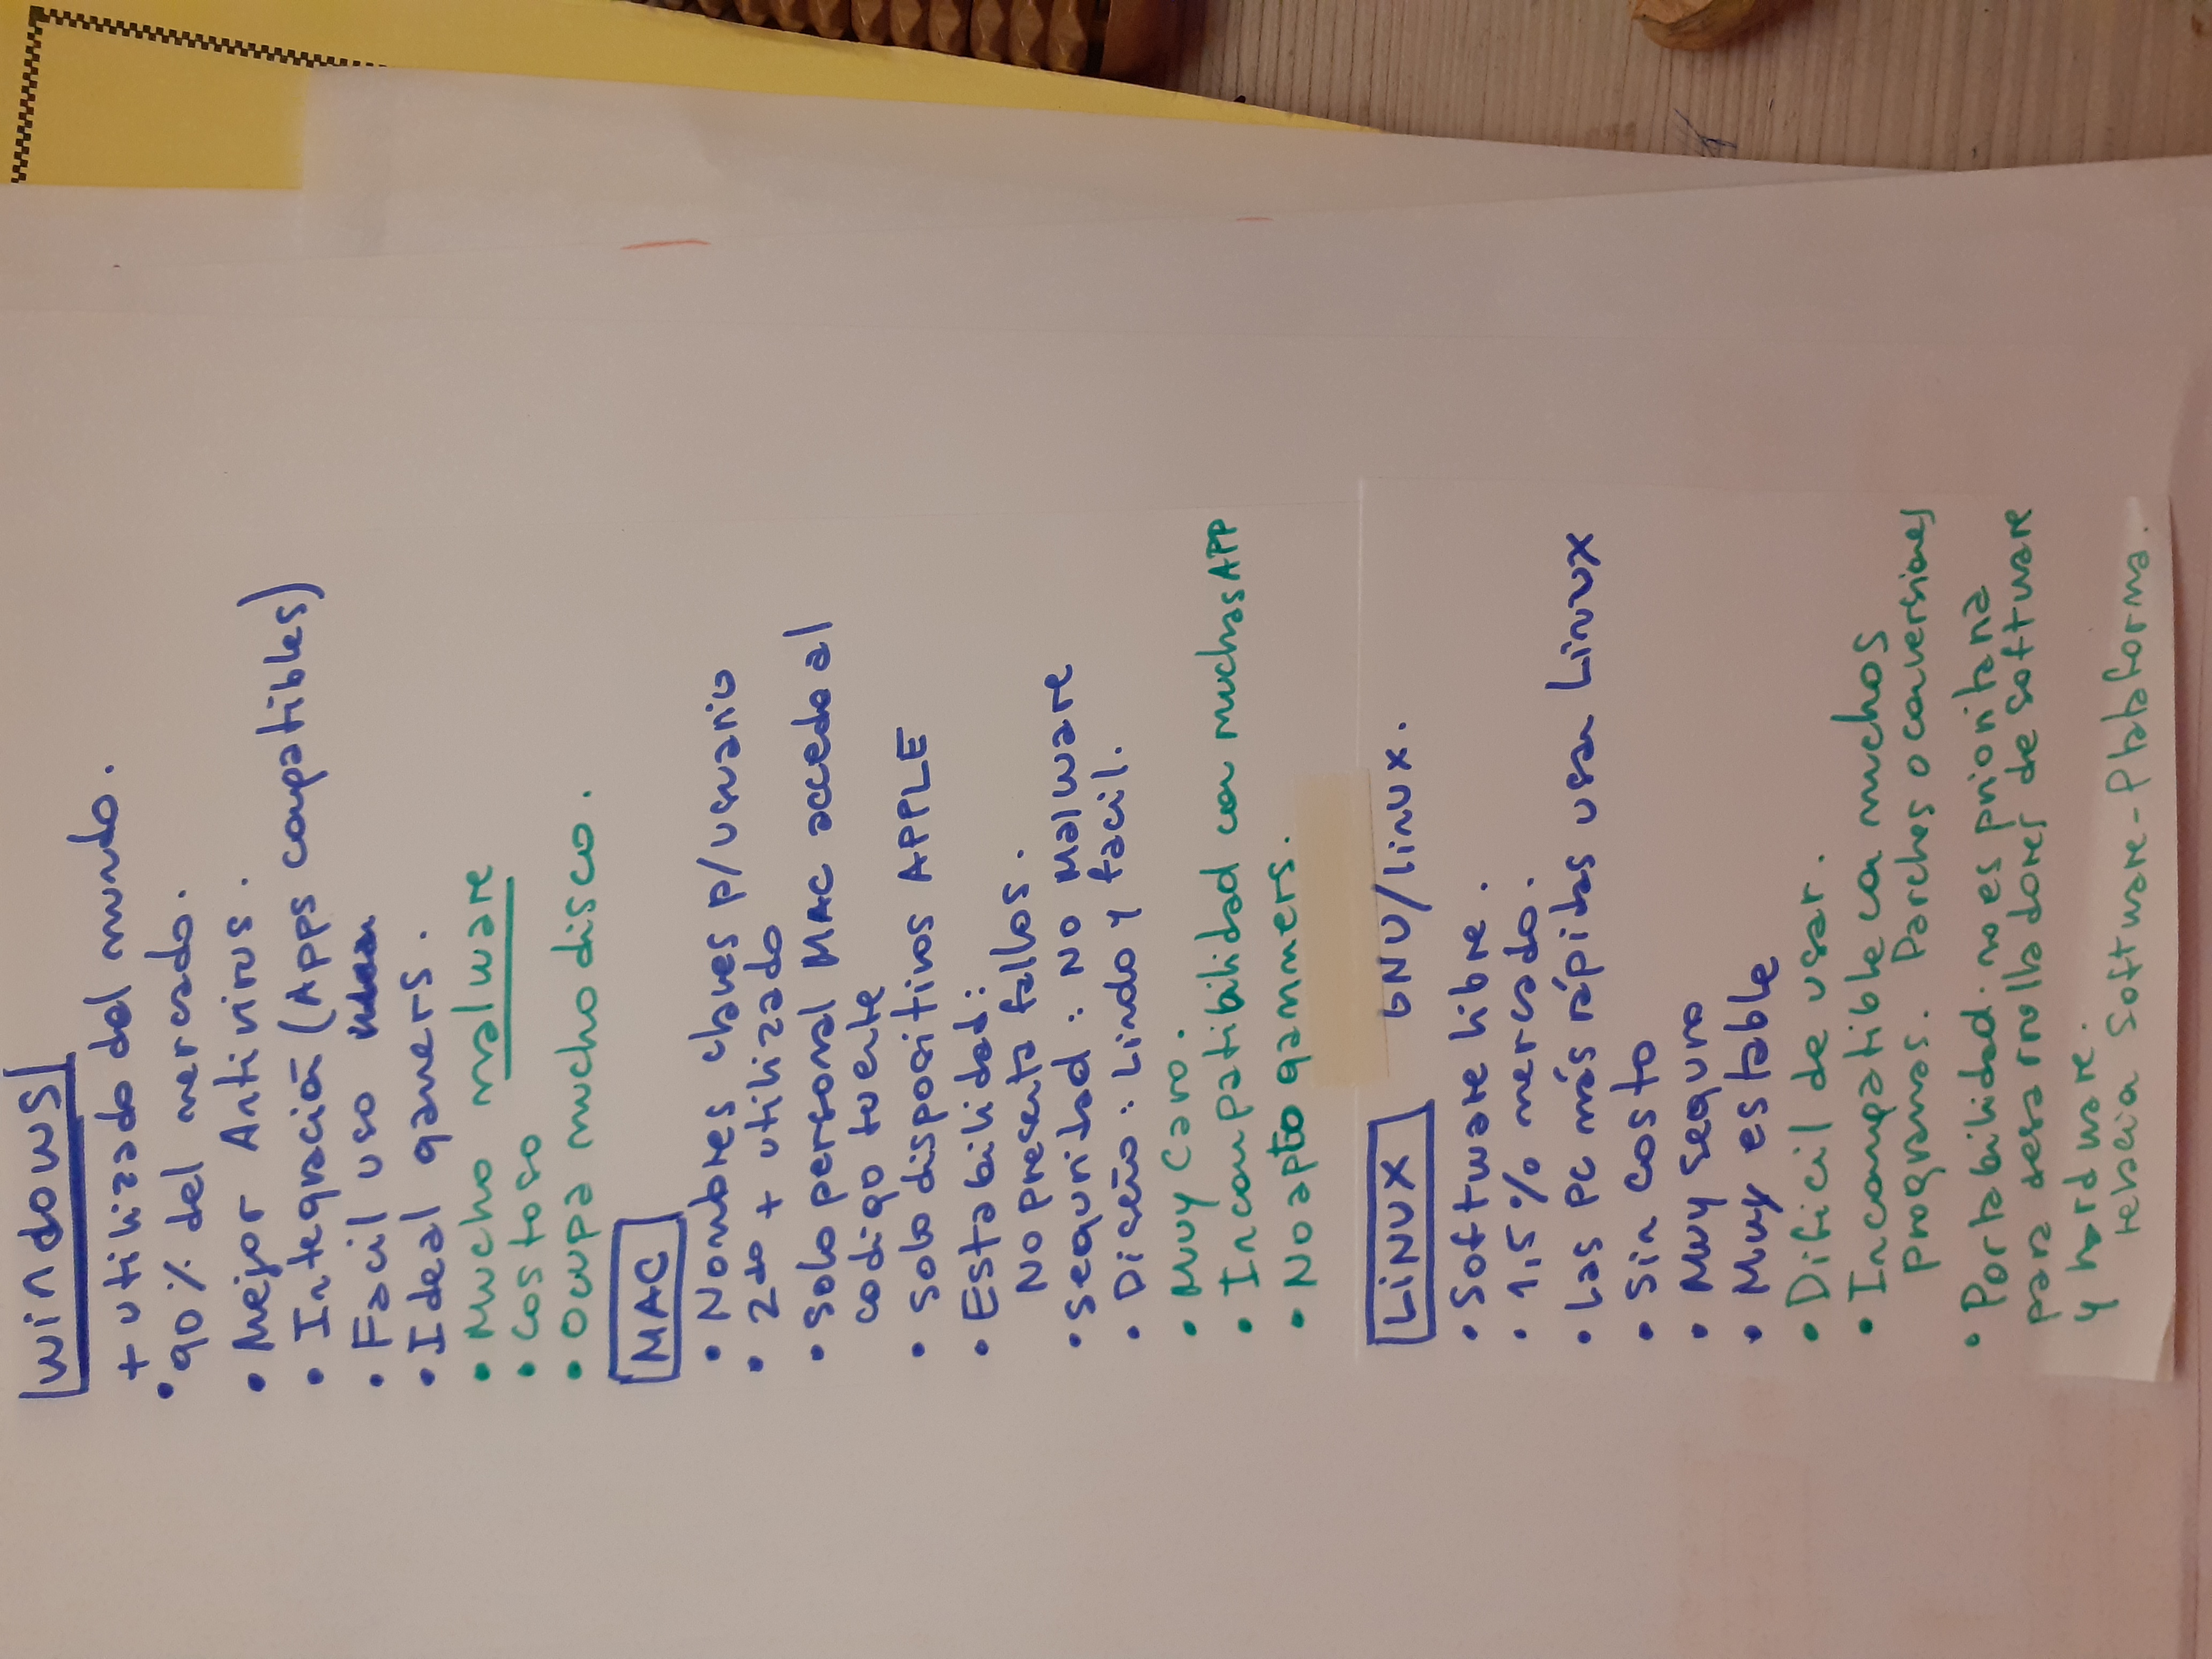 Windows
+ utilizado del mundo.
• 90% del mercado.
• Mejor Antivirus.
• Integración (Apps compatibles)
• Facil uso
• Ideal gamers.
• Mucho malware
• Costoso
• Ocupa mucho disco.
MAC
• Nombres claves p/usuario
• 2do + utilizado
• Solo personal MAC accede al
codigo fuente
• Solo dispositivos APPLE
• Estabilidad:
No presenta fallos.
• Seguridad: No Malware
• Diseño: Lindo y facil.
• Muy Caro.
• Incompatibilidad con muchas APP
• No apto gammers.
LiNUX GNU/linux.
• Software libre.
• 1,5% mercado.
• Las PC más rápidas usan Linux
• Sin costo
• Muy seguro
• Muy estable
• Dificil de usar.
• Incompatible con muchos
programas. Parches o conversiones
• Portabilidad. no es prioritaria
para desarrolladores de software
y hardware.
relacion Software-Plataforma.